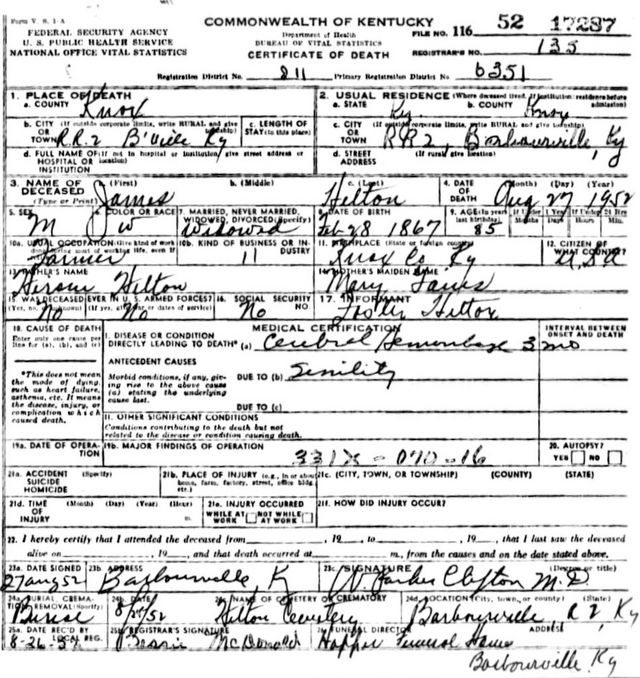 Form V. S. 1-A
COMMONWEALTH OF KENTUCKY
FEDERAL SECURITY AGENCY
U. S. PUBLIC HEALTH SERVICE
NATIONAL OFFICE VITAL STATISTICS
Department of Health
BUREAU OF VITAL STATISTICS
CERTIFICATE OF DEATH
FILE NO. 116 52 17287
REGISTRAR'S NO. 135
Registration District No. 811 Primary Registration District No. 6351
1. PLACE OF DEATH
a. COUNTY Knox
2. USUAL RESIDENCE (Where deceased lived. If institution: residence before admission)
a. STATE Ky b. COUNTY Knox
b. CITY (If outside corporate limits, write RURAL and give township) OR TOWN R.R.2 B'Ville Ky
c. LENGTH OF STAY (in this place)
c. CITY (If outside corporate limits, write RURAL and give township) OR TOWN RR2, Barbourville, Ky
d. FULL NAME OF (If not in hospital or institution, give street address or location) HOSPITAL OR INSTITUTION
d. STREET ADDRESS (If rural give location)
3. NAME OF DECEASED (Type or Print)
a. (First) James
b. (Middle)
c. (Last) Hilton
4. DATE OF DEATH (Month) (Day) (Year) Aug 27 1952
5. SEX M
6. COLOR OR RACE W
7. MARRIED, NEVER MARRIED, WIDOWED, DIVORCED (Specify) Widowed
8. DATE OF BIRTH Feb 28 1867
9. AGE (In years last birthday) 85
If Under 1 Year Months Days
If Under 24 Hrs. Hours Min.
10a. USUAL OCCUPATION (Give kind of work done during most of working life, even if retired) Farmer
10b. KIND OF BUSINESS OR INDUSTRY 11
11. BIRTHPLACE (State or foreign country) Knox Co, Ky
12. CITIZEN OF WHAT COUNTRY? USA
13. FATHER'S NAME
Hiram Hilton
14. MOTHER'S MAIDEN NAME
Mary
15. WAS DECEASED EVER IN U. S. ARMED FORCES? (Yes, no, or unknown) (If yes, give war or dates of service) No No
16. SOCIAL SECURITY NO. No
17. INFORMANT
Foster Hilton
18. CAUSE OF DEATH
Enter only one cause per line for (a), (b), and (c)
*This does not mean the mode of dying, such as heart failure, asthenia, etc. It means the disease, injury, or complication which caused death.
MEDICAL CERTIFICATION
INTERVAL BETWEEN ONSET AND DEATH
I. DISEASE OR CONDITION DIRECTLY LEADING TO DEATH* (a) Cerebral Hemorrhage 3 mo
ANTECEDENT CAUSES
Morbid conditions, if any, giving rise to the above cause (a) stating the underlying cause last.
DUE TO (b) Senility
DUE TO (c)
II. OTHER SIGNIFICANT CONDITIONS
Conditions contributing to the death but not related to the disease or condition causing death.
19a. DATE OF OPERATION
19b. MAJOR FINDINGS OF OPERATION
331X - 070 - 16
20. AUTOPSY?
YES NO
21a. ACCIDENT (Specify) SUICIDE HOMICIDE
21b. PLACE OF INJURY (e.g., in or about home, farm, factory, street, office bldg., etc.)
21c. (CITY, TOWN, OR TOWNSHIP) (COUNTY) (STATE)
21d. TIME OF INJURY (Month) (Day) (Year) (Hour)
21e. INJURY OCCURRED
WHILE AT WORK NOT WHILE AT WORK
21f. HOW DID INJURY OCCUR?
22. I hereby certify that I attended the deceased from , 19 , to , 19 , that I last saw the deceased
alive on , 19 , and that death occurred at m., from the causes and on the date stated above.
23a. DATE SIGNED 27 Aug 52
23b. ADDRESS Barbourville, K
23c. SIGNATURE (Degree or title) W Parker Clifton M.D
24a. BURIAL, CREMATION, REMOVAL (Specify) Burial
24b. DATE 8/27/52
24c. NAME OF CEMETERY OR CREMATORY Hilton Cemetery
24d. LOCATION (City, town, or county) (State) Barbourville, R 2, Ky
25a. DATE REC'D BY LOCAL REG.
25b. REGISTRAR'S SIGNATURE Bessie McDonald
26. FUNERAL DIRECTOR ADDRESS Hopper Funeral Home
Barbourville, Ky